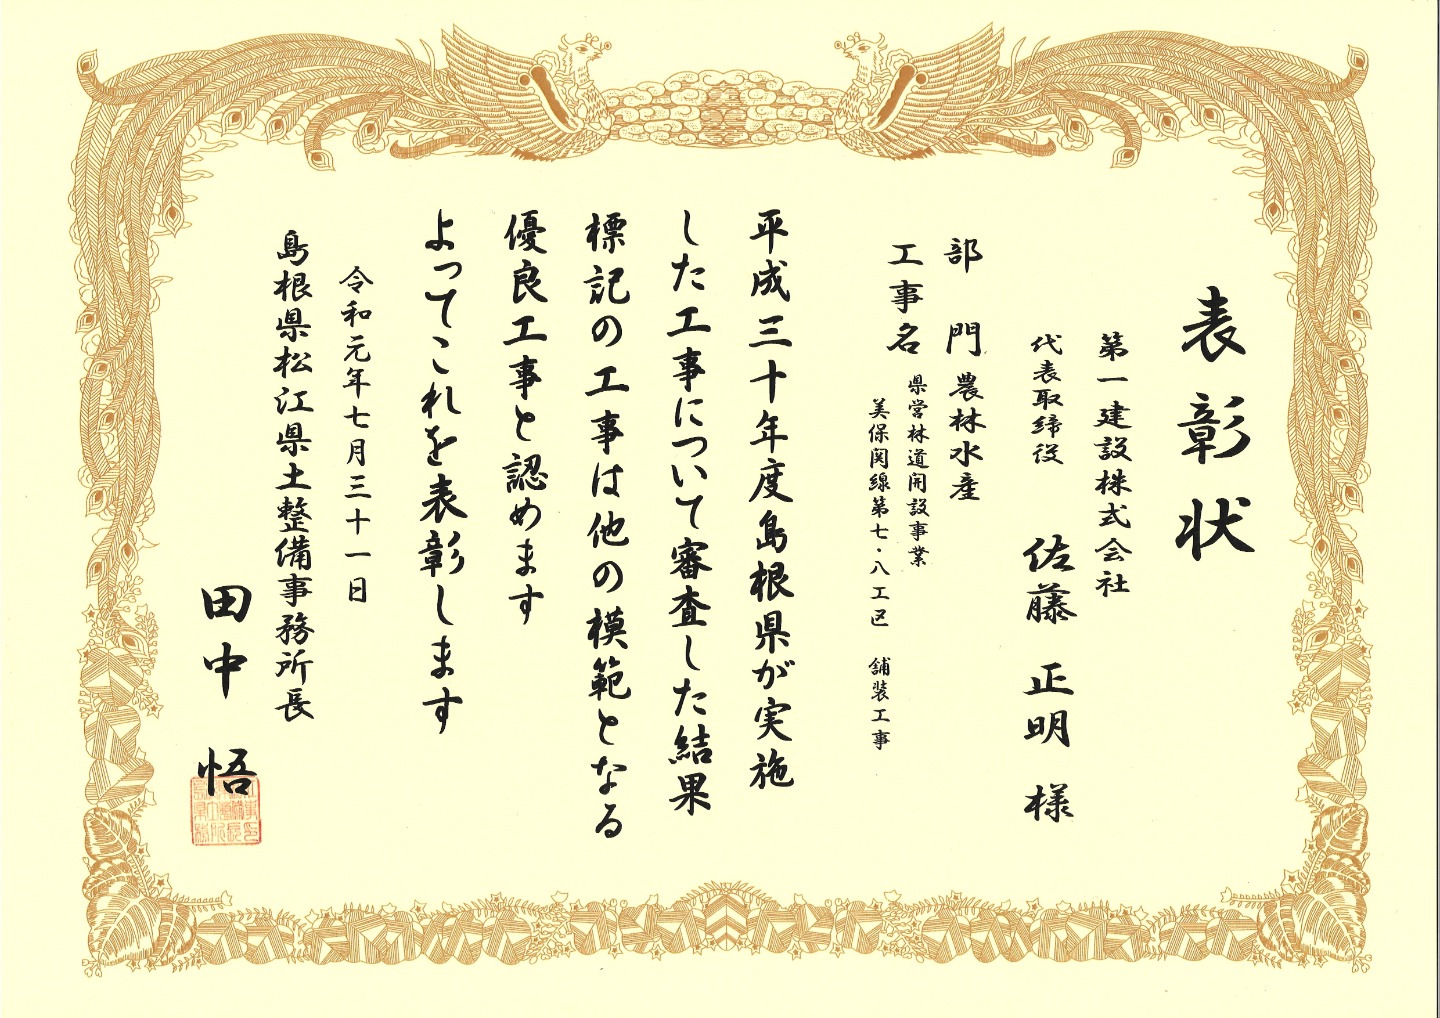 表彰状
第一建設株式会社
代表取締役 佐藤 正明 様
部門 農林水産
工事名 県営林道開設事業
美保関線第七・八工区 舗装工事
平成三十年度島根県が実施
した工事について審査した結果
標記の工事は他の模範となる
優良工事と認めます
よってこれを表彰します
令和元年七月三十一日
島根県松江県土整備事務所長
田中 悟